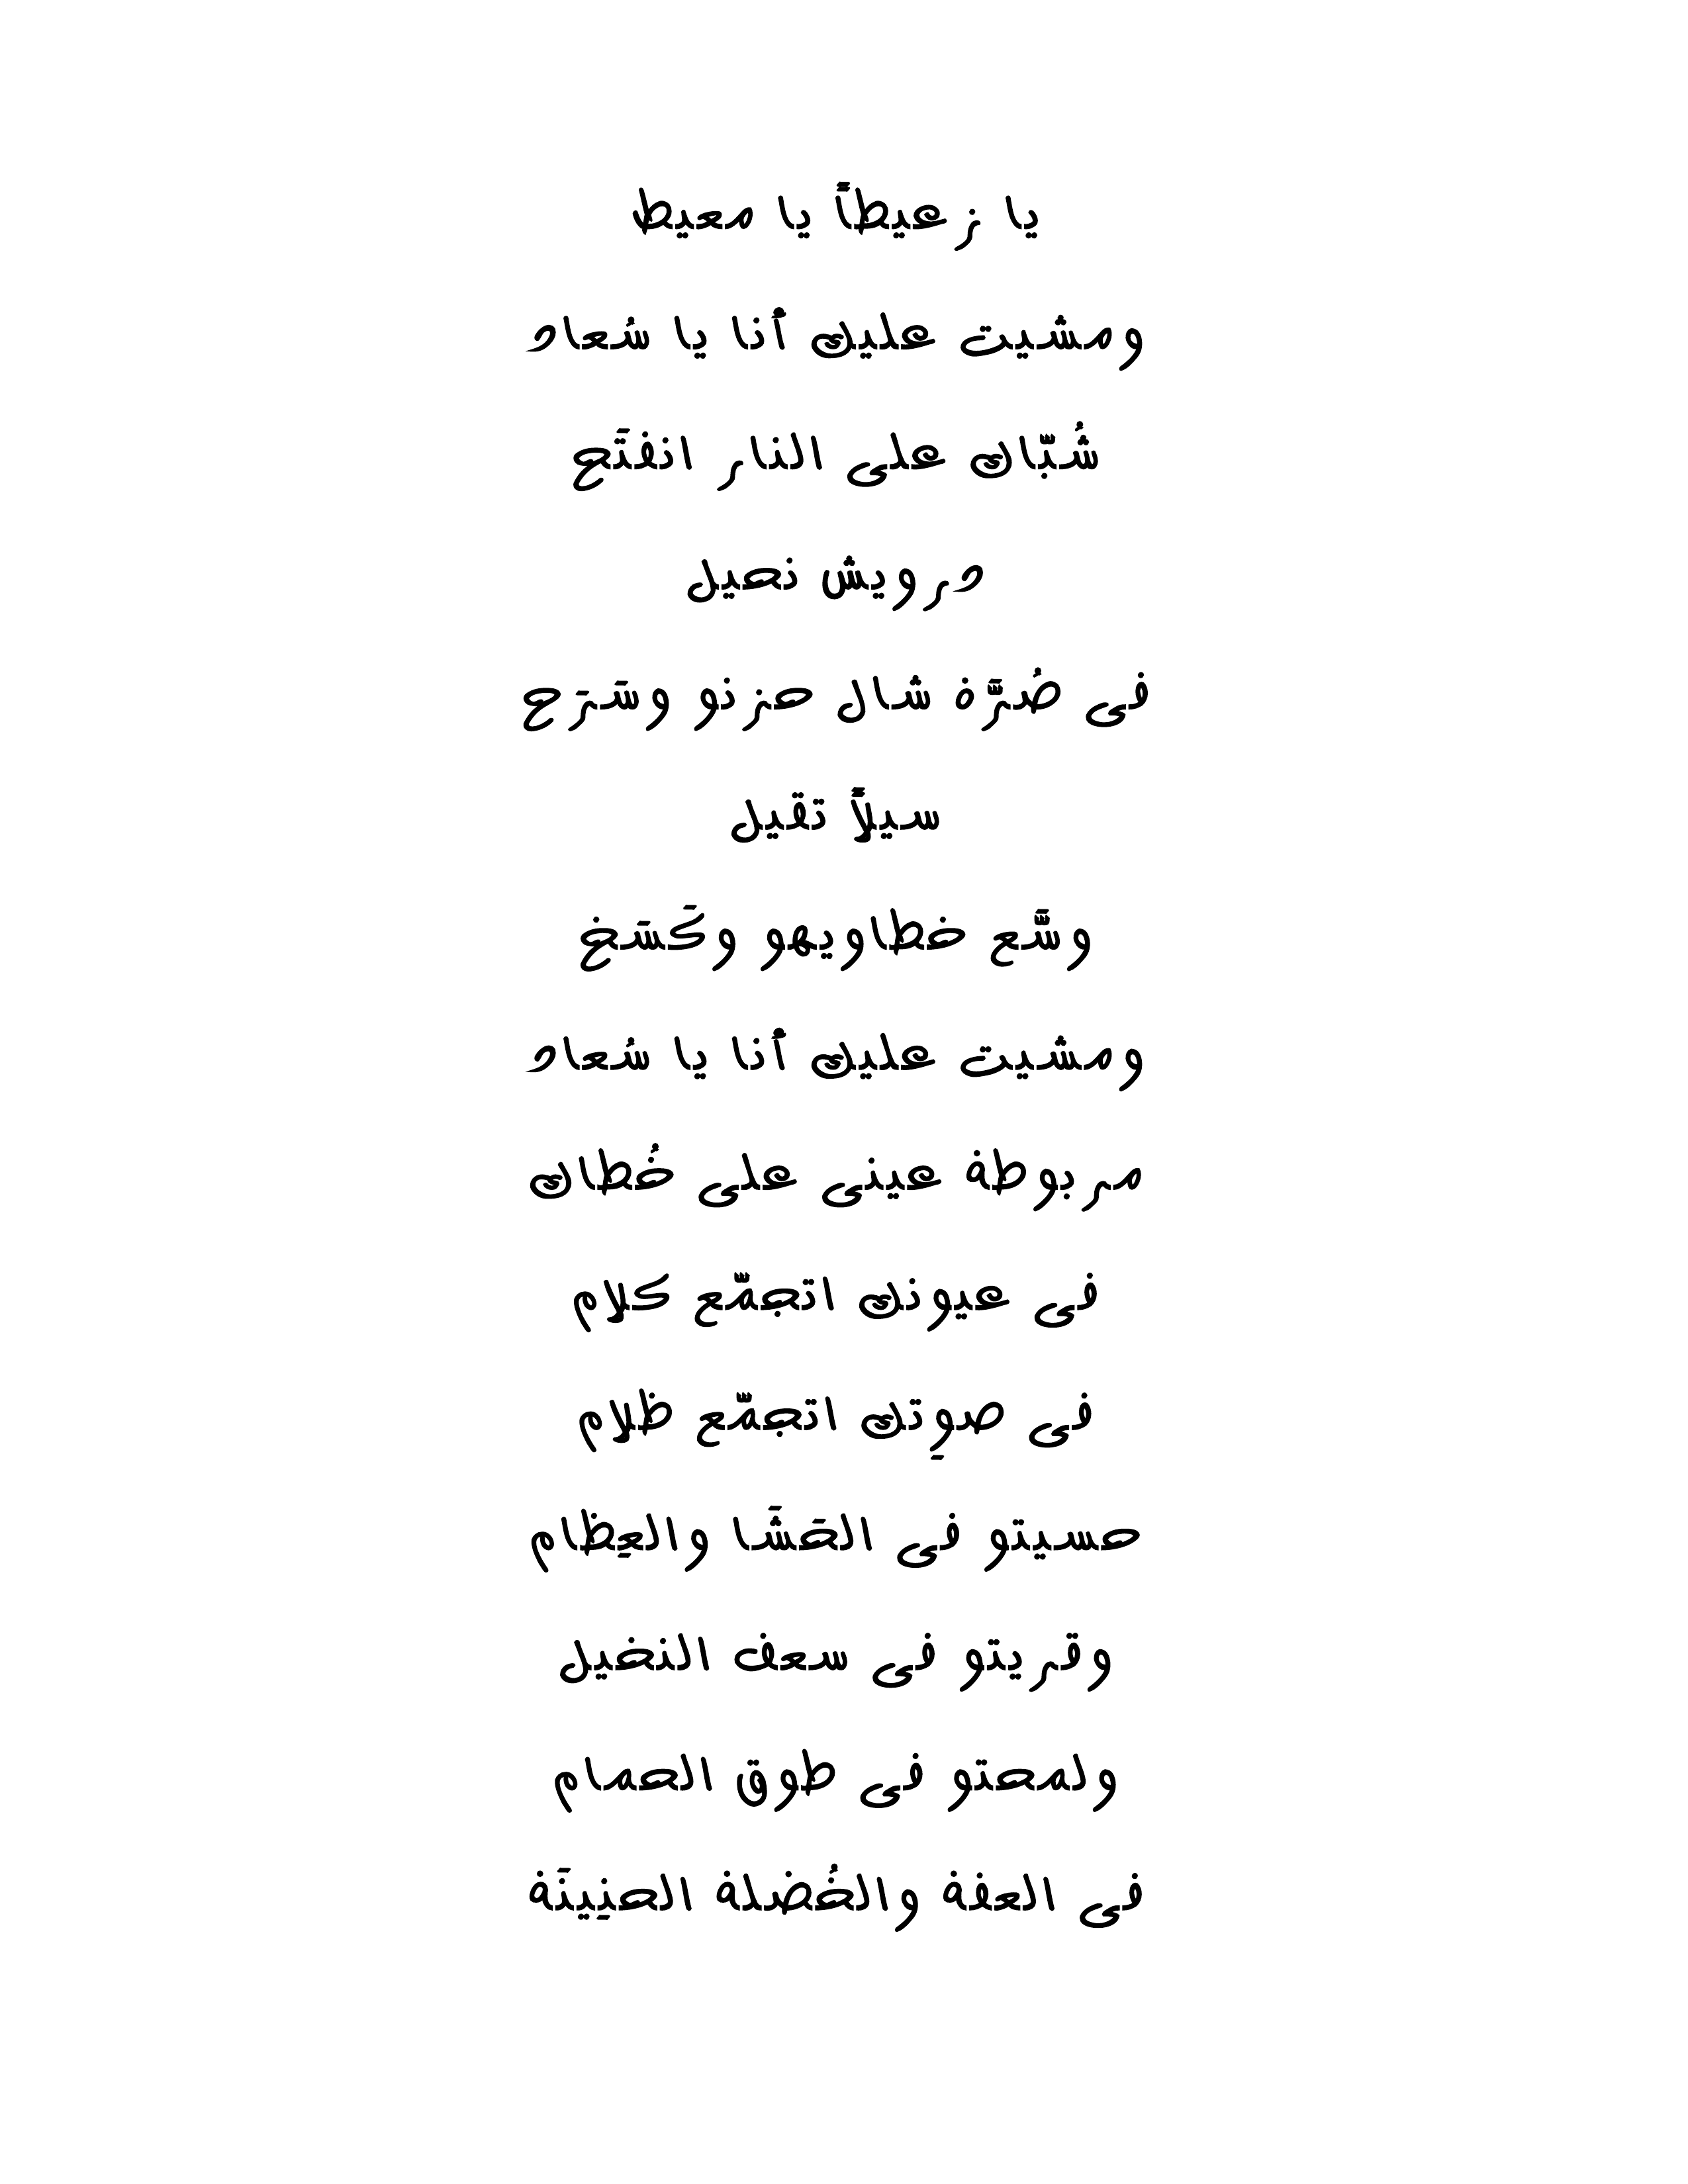 يا زعيطاً يا معيط
ومشيت عليك أنا يا سُعاد
شُبّاك على النار انفتَح
درويش نحيل
فى صُرَّة شال حزنو وسَرَح
سيلاً تقيل
وسَّع خطاويهو وكَسَح
ومشيت عليك أنا يا سُعاد
مربوطة عينى على خُطاك
فى عيونك اتجمّع كلام
فى صوِتك اتجمّع ظلام
حسيتو فى الحَشَا والعِظام
وقريتو فى سعف النخيل
ولمحتو فى طوق الحمام
فى العفة والخُضلة الحنِينَة